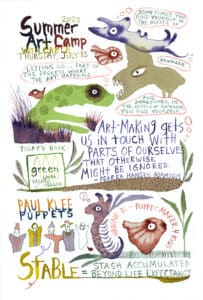 Summer
2023
Art Camp
THURSDAY, JULY 13
SOMETIMES YOU
FIND YOURSELF IN
THE MIDDLE OF
NOWHERE
LETTING GO... PART OF
THE PROCESS WHERE
THE ART HAPPENS
AND SOMETIMES, IN
THE MIDDLE OF NOWHERE
YOU FIND YOURSELF.
ART-MAKING gETS
US IN TOUCH WITH
PARTS OF OURSELVES
THAT OTHERWISE
MIGHT BE IGNORED.
TODAY'S BOOK:
green
LAURA
VACCARO
SEEGER
PAUL KLEE
PUPPETS
PUPPET MAKER 4 KIDS
STABLE = STASH ACCUMULATED
BEYOND LIFE EXPECTANCY